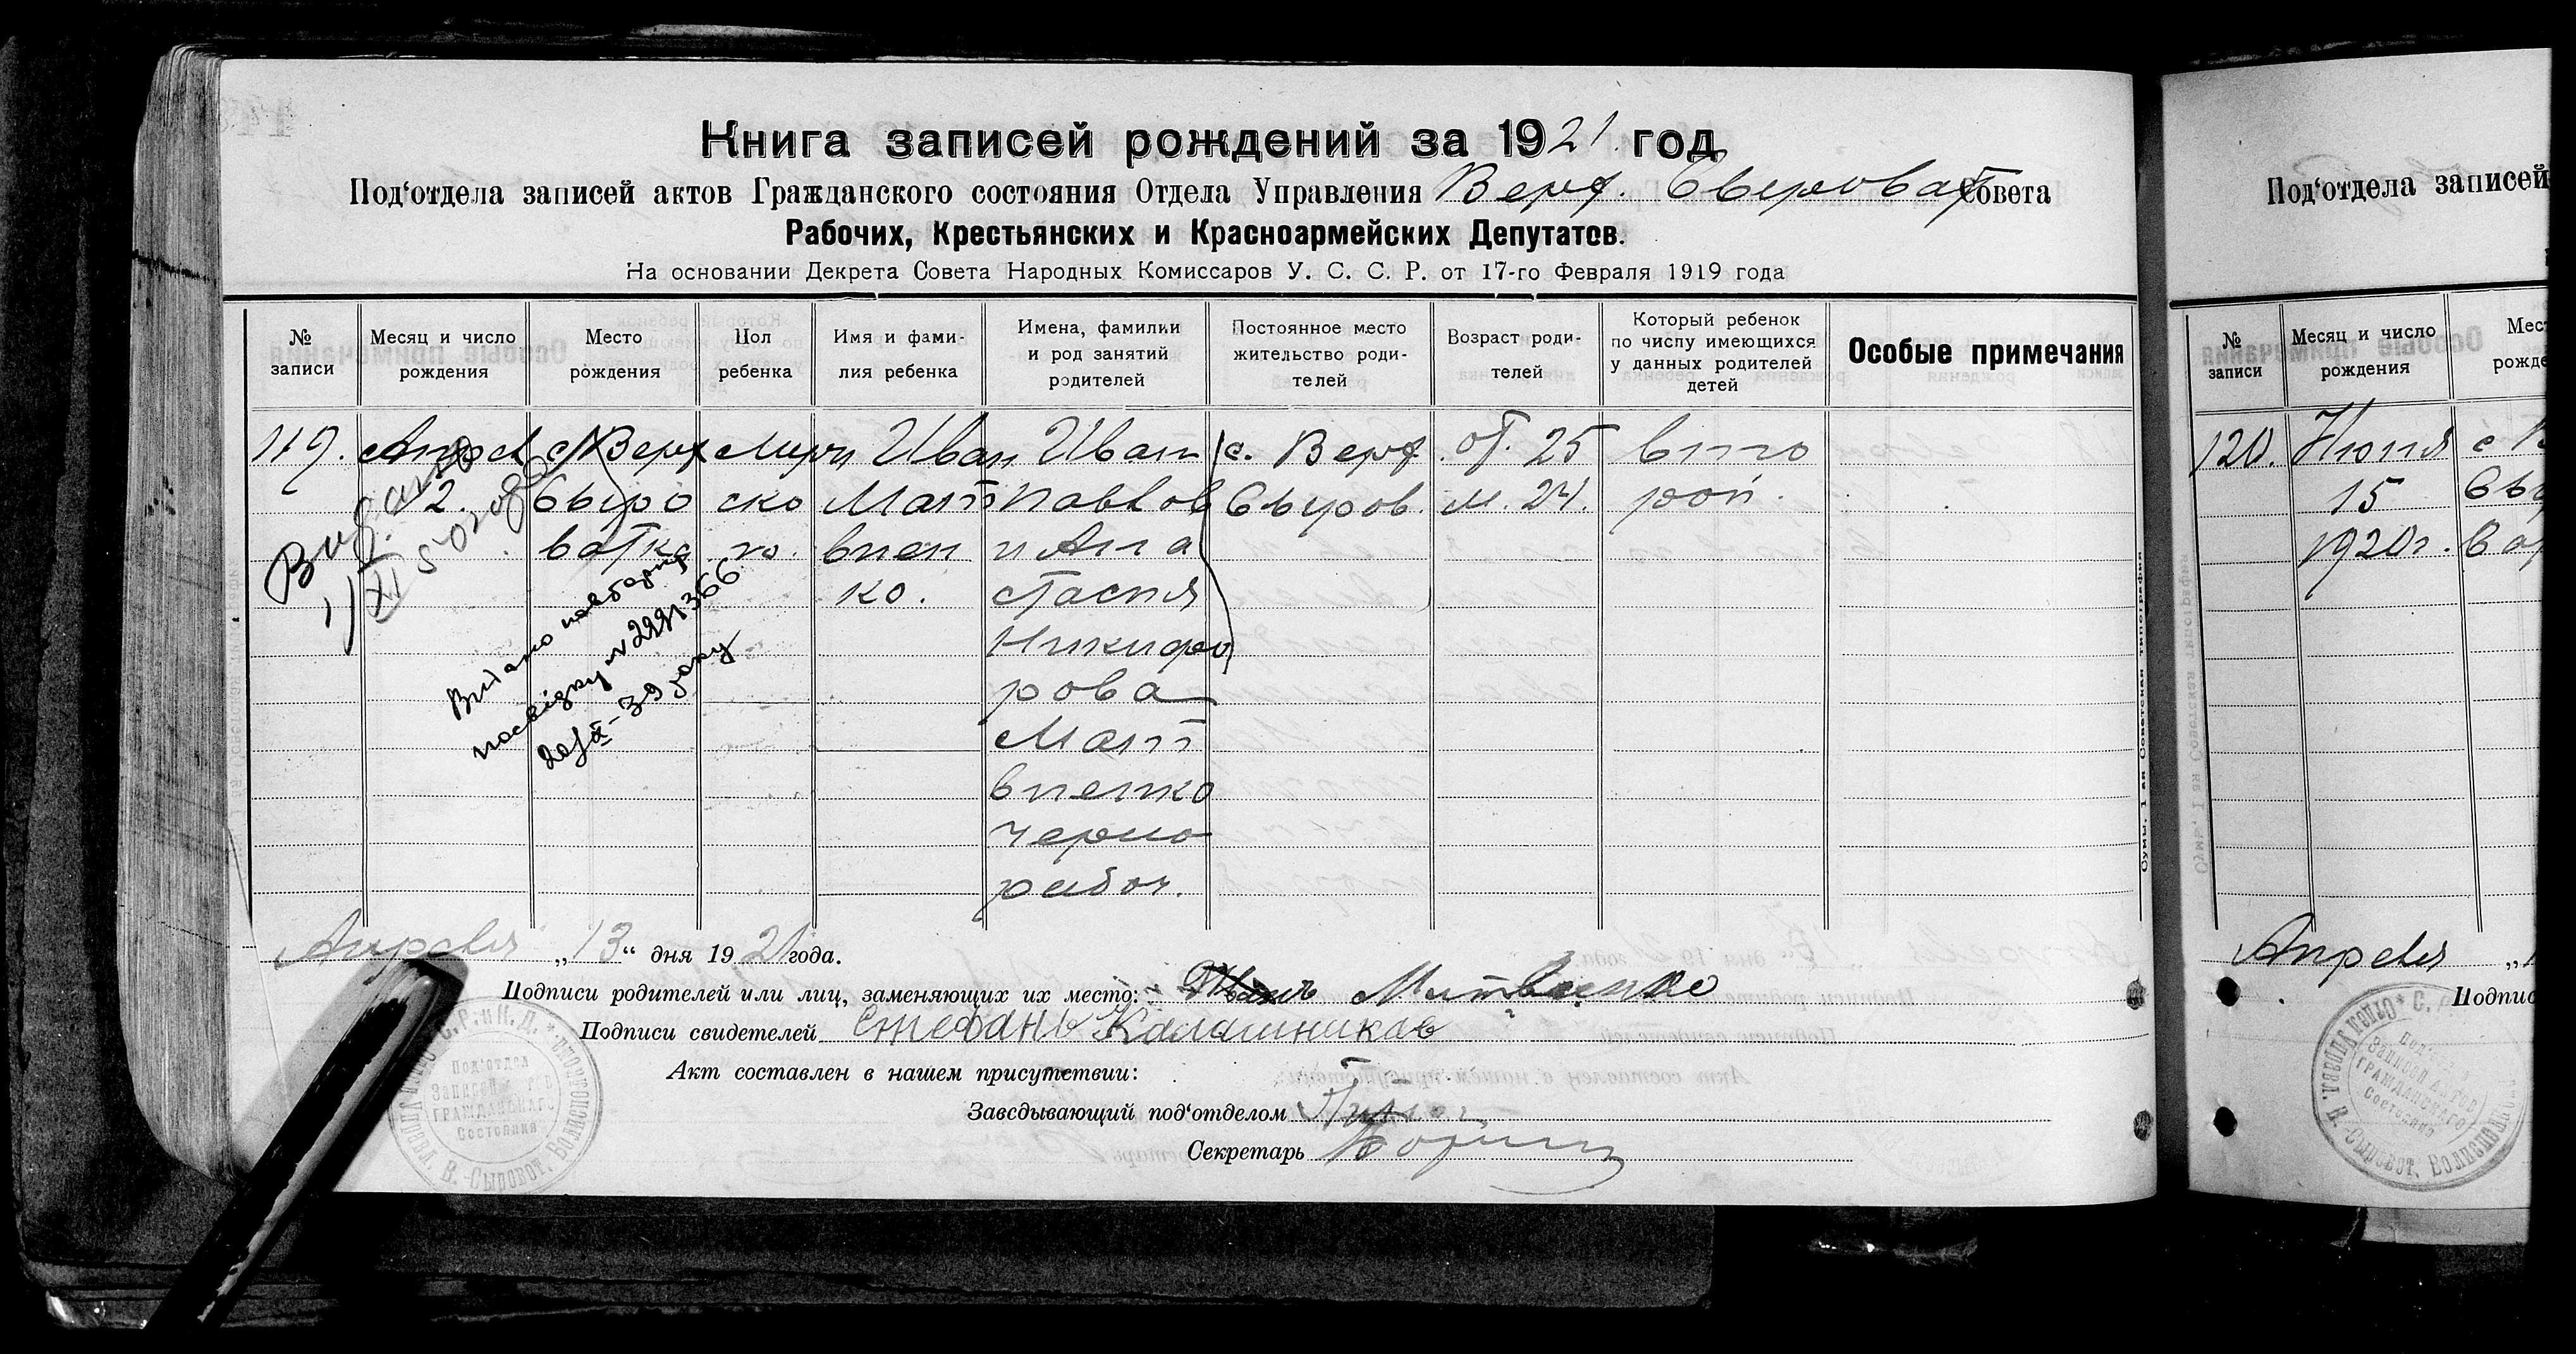 Книга записей рождений за 1921 год
Под‘отдела записей актов Гражданского состояния Отдела Управления Верх. Сыроват Совета
Рабочих, Крестьянских и Красноармейских Депутатов.
На основании Декрета Совета Народных Комиссаров У. С. С. Р. от 17-го Февраля 1919 года
№ записи
Месяц и число рождения
Место рождения
Пол ребенка
Имя и фами-
лия ребенка
Имена, фамилии
и род занятий
родителей
Постоянное место
жительство роди-
телей
Возраст роди-
телей
Который ребенок
по числу имеющихся
у данных родителей
детей
Особые примечания
119.
Апрел
12.
с. Верх
Сыро
ватка
Мужч
ско
го.
Иван
Мат
виен
ко.
Иван
Павлов
и Ана
стасия
Никифо
рова
Мат
виенко
черно
рабоч.
с. Верх
Сыров.
от. 25
м. 24.
вто
рой.
Видано
1/XI 50 года
Видано повторну
посвідку № 2991366
20/X-39 року
Апреля „13“ дня 1921 года.
Подписи родителей или лиц, заменяющих их место: Иванъ Матвиенко
Подписи свидетелей Стефанъ Калашников
Акт составлен в нашем присутствии:
Заведывающий под‘отделом
Секретарь
Под‘отдел
Записей
ГРАЖДАНСКАГО
Состояния
В. СЫРОВОТ. ВОЛИСПОЛКОМ
Сумы, 1-ая Советская типография
Под‘отдела записей
№ записи
Месяц и число рождения
120.
Июня
15
1920г.
Апреля
Под‘отдел
Записей Актов
ГРАЖДАНСКАГО
Состояния
В. СЫРОВОТ. ВОЛИСПОЛКОМ